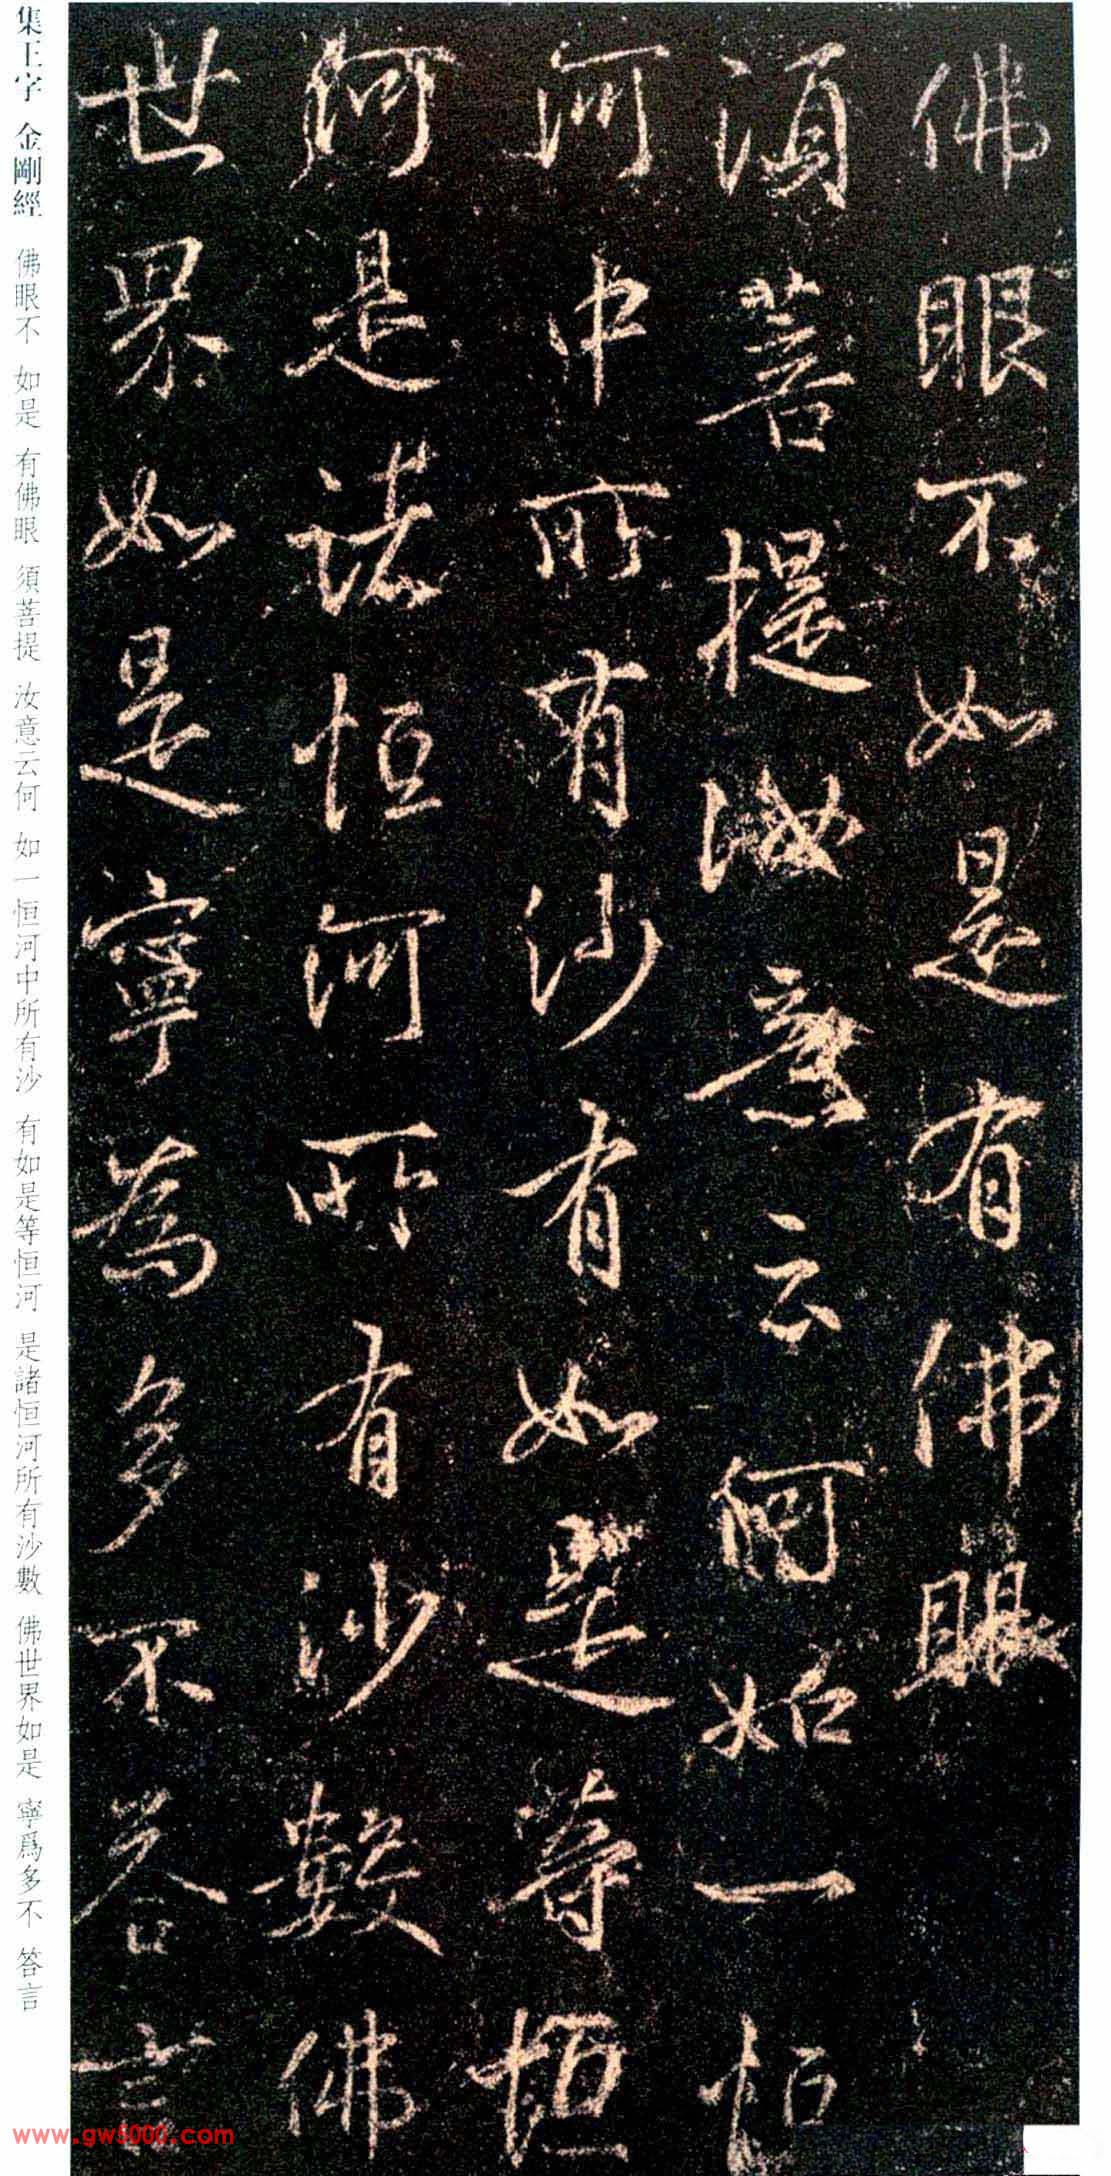 佛眼不如是有佛眼
須菩提汝意云何如一恒
河中所有沙有如是等恒
河是諸恒河所有沙數佛
世界如是寧為多不答言
集王字 金剛經 佛眼不 如是 有佛眼 須菩提 汝意云何 如一恒河中所有沙 有如是等恒河 是諸恒河所有沙數 佛世界如是 寧爲多不 答言
www.gw5000.com